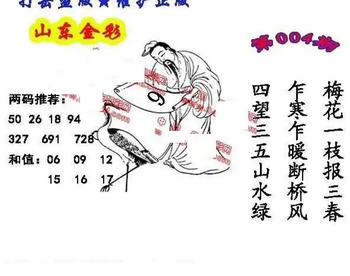 打击盗版黄维护正版
山东金彩
第004期
两码推荐:
50 26 18 94
327 691 728
和值: 06 09 12
15 16 17
9
梅花一枝报三春
乍寒乍暖断桥风
四望三五山水绿